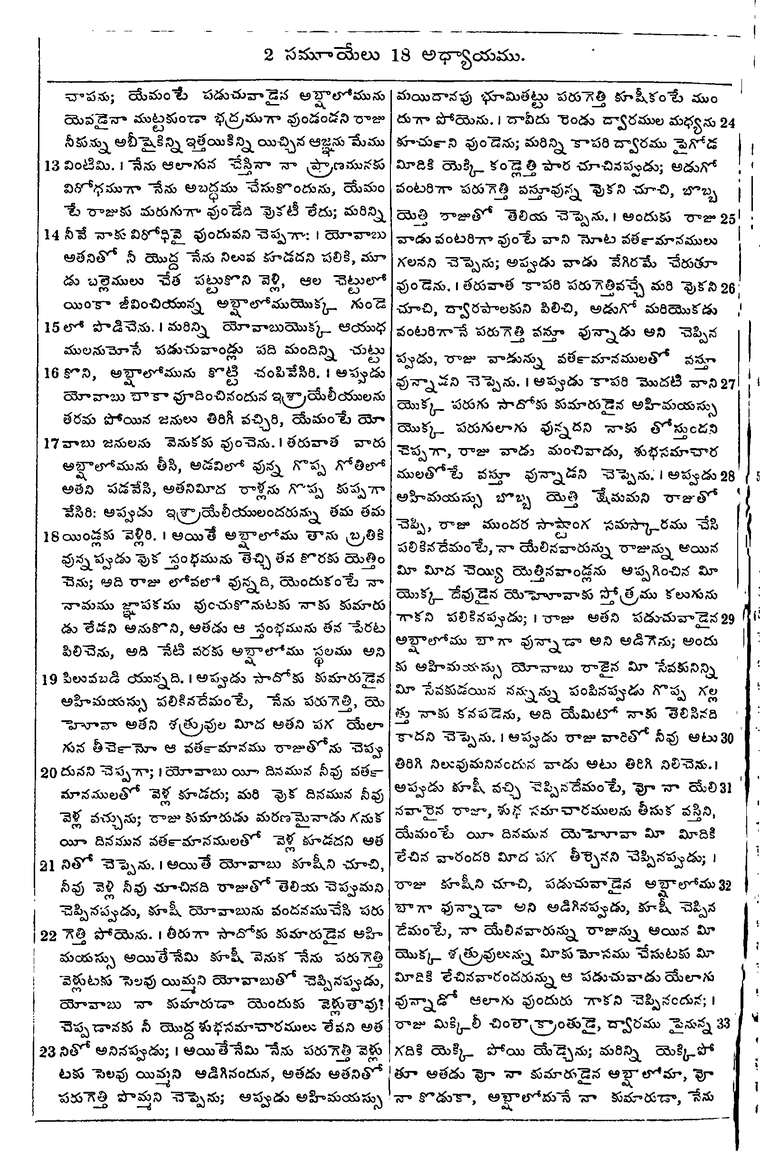 2 సమూయేలు 18 అధ్యాయము.
చాపను; యేమంటే పడుచువాడైన అబ్షాలోమును
యెవడైనా ముట్టకుండా భద్రముగా వుండండని రాజు
నీకున్ను అబీషైకిన్ని ఇత్తయికిన్ని యిచ్చిన ఆజ్ఞను మేము
13 వింటిమి. । నేను ఆలాగున చేస్తినా నా ప్రాణమునకు
విరోధముగా నేను అబద్ధము చేసుకొందును, యేమం
టే రాజుకు మరుగుగా వుండేది వొకటీ లేదు; మరిన్ని
14 నీవే నాకు విరోధివై వుందువని చెప్పగా: । యోవాబు
అతనితో నీ యొద్ద నేను నిలువ కూడదని పలికి, మూ
డు బల్లెములు చేత పట్టుకొని వెళ్లి, ఆల చెట్టులో
యింకా జీవించియున్న అబ్షాలోముయొక్క గుండె
15 లో పొడిచెను. । మరిన్ని యోవాబుయొక్క ఆయుధ
ములనుమోసే పడుచువాండ్లు పది మందిన్ని చుట్టు
16 కొని, అబ్షాలోమును కొట్టి చంపివేసిరి. । అప్పుడు
యోవాబు బాకా వూదించినందున ఇశ్రాయేలీయులను
తరమ పోయిన జనులు తిరిగీ వచ్చిరి, యేమంటే యో
17 వాబు జనులను వెనుకకు వుంచెను. । తరువాత వారు
అబ్షాలోమును తీసి, అడవిలో వున్న గొప్ప గోతిలో
అతని పడవేసి, అతనిమీద రాళ్లను గొప్ప కుప్పగా
వేసిరి: అప్పుడు ఇశ్రాయేలీయులందరున్ను తమ తమ
18 యిండ్లకు వెళ్లిరి. । అయితే అబ్షాలోము తాను బ్రతికి
వున్నప్పుడు వొక స్తంభమును తెచ్చి తన కొరకు యెత్తిం
చెను; అది రాజు లోవలో వున్నది, యెందుకంటే నా
నామము జ్ఞాపకము వుంచుకొనుటకు నాకు కుమారు
డు లేడని అనుకొని, ఆతడు ఆ స్తంభమును తన పేరట
పిలిచెను, అది నేటి వరకు అబ్షాలోము స్థలము అని
19 పిలువబడి యున్నది. । అప్పుడు సాదోకు కుమారుడైన
అహిమయస్సు పలికినదేమంటే, నేను పరుగెత్తి, యె
హోవా అతని శత్రువుల మీద అతని పగ యేలా
గున తీర్చెనో ఆ వర్తమానము రాజుతోను చెప్పు
20 దునని చెప్పగా; । యోవాబు యీ దినమున నీవు వర్త
మానములతో వెళ్ల కూడదు; మరి వొక దినమున నీవు
వెళ్ల వచ్చును; రాజు కుమారుడు మరణమైనాడు గనుక
యీ దినమున వర్తమానములతో వెళ్ల కూడదని అత
21 నితో చెప్పెను. । అయితే యోవాబు కూషీని చూచి,
నీవు వెళ్లి నీవు చూచినది రాజుతో తెలియ చెప్పుమని
చెప్పినప్పుడు, కూషీ యోవాబును వందనముచేసి పరు
22 గెత్తి పోయెను. । తిరుగా సాదోకు కుమారుడైన అహి
మయస్సు అయితేనేమి కూషీ వెనుక నేను పరుగెత్తి
వెళ్లుటకు సెలవు యిమ్మని యోవాబుతో చెప్పినప్పుడు,
యోవాబు నా కుమారుడా యెందుకు వెళ్లుతావు?
చెప్పడానకు నీ యొద్ద శుభసమాచారములు లేవని అత
23 నితో అనినప్పుడు; । అయితేనేమి నేను పరుగెత్తి వెళ్లు
టకు సెలవు యిమ్మని అడిగినందున, అతడు అతనితో
పరుగెత్తి పొమ్మని చెప్పెను; అప్పుడు అహిమయస్సు
మయిదానపు భూమితట్టు పరుగెత్తి కూషీకంటే ముం
దుగా పోయెను. । దావీదు రెండు ద్వారముల మధ్యను 24
కూర్చుని వుండెను; మరిన్ని కాపరి ద్వారము పైగోడ
మీదికి యెక్కి కండ్లెత్తి పార చూచినప్పుడు; అదుగో
వంటరిగా పరుగెత్తి వస్తూవున్న వొకని చూచి, బొబ్బ
యెత్తి రాజుతో తెలియ చెప్పెను. । అందుకు రాజు 25
వాడు వంటరిగా వుంటే వాని నోట వర్తమానములు
గలనని చెప్పెను; అప్పుడు వాడు వేగిరమే చేరుతూ
వుండెను. । తరువాత కాపరి పరుగెత్తివచ్చే మరి వొకని 26
చూచి, ద్వారపాలకుని పిలిచి, అడుగో మరియొకడు
వంటరిగానే పరుగెత్తి వస్తూ వున్నాడు అని చెప్పిన
ప్పుడు, రాజు వాడున్ను వర్తమానములతో వస్తూ
వున్నాడని చెప్పెను. । అప్పుడు కాపరి మొదటి వాని 27
యొక్క పరుగు సాదోకు కుమారుడైన అహిమయస్సు
యొక్క పరుగులాగు వున్నదని నాకు తోస్తుందని
చెప్పగా, రాజు వాడు మంచివాడు, శుభసమాచార
ములతోటే వస్తూ వున్నాడని చెప్పెను. । అప్పుడు 28
అహిమయస్సు బొబ్బ యెత్తి క్షేమమని రాజుతో
చెప్పి, రాజు ముందర సాష్టాంగ నమస్కారము చేసి
పలికినదేమంటే, నా యేలినవారున్ను రాజున్ను అయిన
మీ మీద చెయ్యి యెత్తినవాండ్లను అప్పగించిన మీ
యొక్క దేవుడైన యెహోవాకు స్తోత్రము కలుగును
గాకని పలికినప్పుడు; । రాజు అతని పడుచువాడైన 29
అబ్షాలోము బాగా వున్నాడా అని అడిగెను; అందు
కు అహిమయస్సు యోవాబు రాజైన మీ సేవకునిన్ని
మీ సేవకుడయిన నన్నున్ను పంపినప్పుడు గొప్ప గల్ల
త్తు నాకు కనపడెను, అది యేమిటో నాకు తెలిసినది
కాదని చెప్పెను. । అప్పుడు రాజు వారితో నీవు అటు 30
తిరిగి నిలువుమనినందున వాడు అటు తిరిగి నిలిచెను. ।
అప్పుడు కూషీ వచ్చి చెప్పినదేమంటే, వో నా యేలి 31
నవారైన రాజా, శుభ సమాచారములను తీసుక వస్తిని,
యేమంటే యీ దినమున యెహోవా మీ మీదికి
లేచిన వారందరి మీద పగ తీర్చెనని చెప్పినప్పుడు; ।
రాజు కూషీని చూచి, పడుచువాడైన అబ్షాలోము 32
బాగా వున్నాడా అని అడిగినప్పుడు, కూషీ చెప్పిన
దేమంటే, నా యేలినవారున్ను రాజున్ను అయిన మీ
యొక్క శత్రువులున్ను మీకుమోసము చేసుటకు మీ
మీదికి లేచినవారందరున్ను ఆ పడుచువాడు యేలాగు
వున్నాడో ఆలాగు వుందురు గాకని చెప్పినందున; ।
రాజు మిక్కిలీ చింతాక్రాంతుడై, ద్వారము పైనున్న 33
గదికి యెక్కి పోయి యేడ్చెను; మరిన్ని యెక్కిపో
తూ అతడు వో నా కుమారుడైన అబ్షాలోమా, వో
నా కొడుకా, అబ్షాలోమనే నా కుమారుడా, నేను